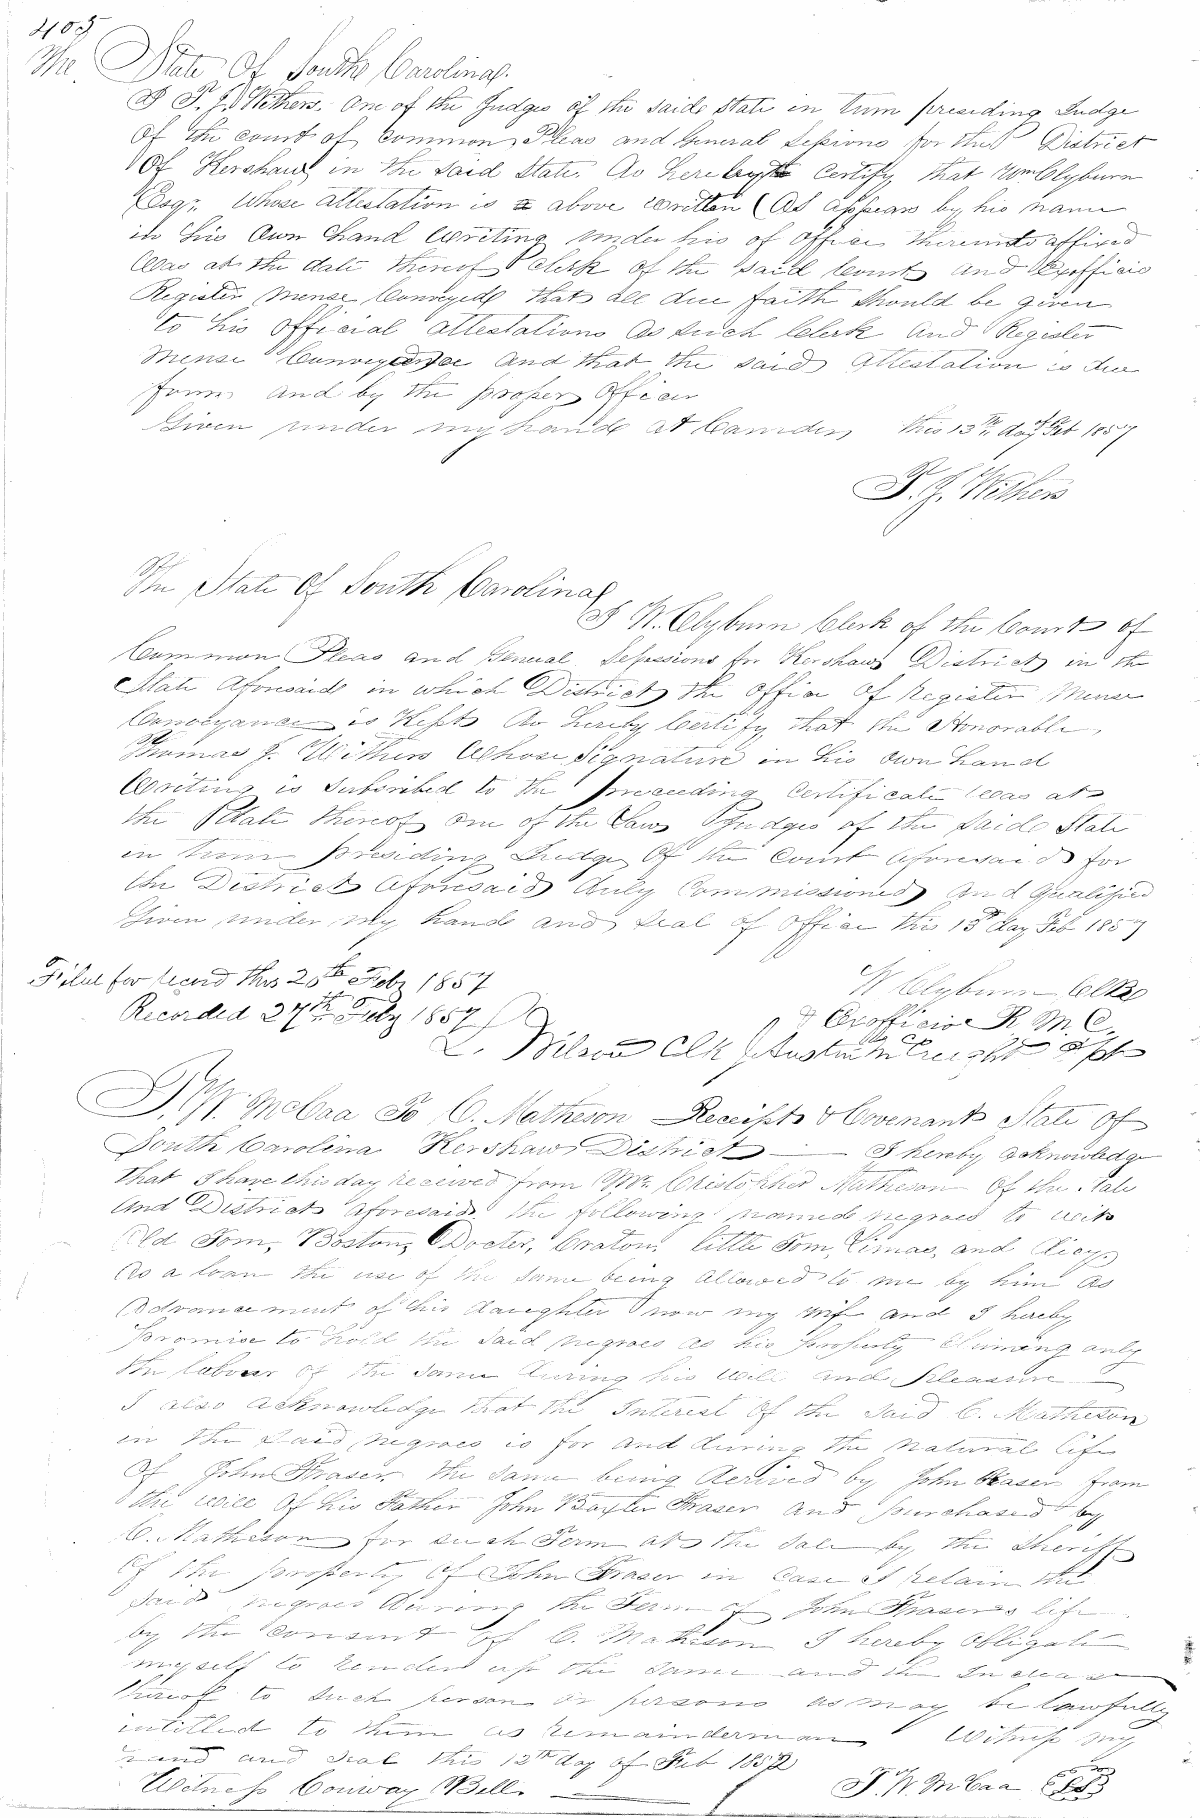 405
The State Of South Carolina
I T. J. Withers One of the Judges of the said State in turn presiding Judge
Of the court of Common Pleas and General Sessions for the District
Of Kershaw in the said State. Do hereby certify that Wm Clyburn
Esqr. Whose attestation is above written (As appears by his name
in his own hand writing under his of office thereunto affixed
Was at the date thereof Clerk of the said Court and Exofficio
Register Mense Conveyed that all due faith should be given
to his official attestations as such Clerk and Register
Mense Conveyance and that the said attestation is due
form and by the proper officer
Given under my hand at Camden this 13th day of Feb 1857
T. J. Withers
The State Of South Carolina
I W. Clyburn Clerk of the Court of
Common Pleas and General Sessions for Kershaw District in the
State Aforesaid in which District the office Of Register Mense
Conveyance is Kept Do hereby Certify that the Honorable
Thomas J. Withers Whose Signature in his own hand
Writing is Subscribed to the preceeding Certificate Was at
the Date thereof One of the Law Judges of the said State
in turn presiding Judge Of the Court aforesaid for
the District aforesaid duly Commissioned And Qualified
Given under my hand and Seal of Office this 13th day Feb 1857
Filed for record this 20th Feby 1857
W Clyburn Clk
Recorded 27th July 1857
& Exofficio R. M. C.
L. Wilson Clk J. Austin McCreight Dpt
T. W. McCaa To C. Matheson Receipt & Covenant State Of
South Carolina Kershaw District I hereby acknowledge
that I have this day received from Mr. Cristopher Matheson Of the State
And District aforesaid the following named negroes to wit
Old Tom, Boston, Docter, Craton, little Tom, Limac, and Dicy.
As a loan the use of the same being allowed to me by him as
advancement of his daughter now my wife and I hereby
promise to hold the said negroes as his property Claiming only
the labour of the same during his will and pleasure
I also acknowledge that the Interest Of the said C. Matheson
in the said negroes is for and during the natural life
Of John Fraser the same being derived by John Fraser from
the will Of his Father John Baxter Fraser and purchased by
C. Matheson for such Term at the sale by the Sheriff
Of the property Of John Fraser in case I retain the
said negroes during the Term of John Fraser's life
by the consent of C. Matheson I hereby obligate
myself to render up the same and the Increase
thereof to such person or persons as may be lawfully
intitled to them as remainderman Witness my
hand and seal this 12th day of Feb 1852
Witness Conway Bell. T. W. McCaa